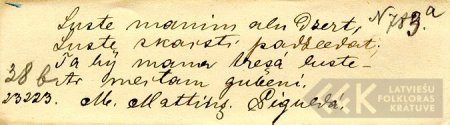 Luste manim alu dzert, № 783.a
Luste skaisti padzeedat;
Ta bij mana tresä luste –
38b Ar meitam gulēni.
23223. M. Mattins. Siguldā.
LATVIEŠU
FOLKLORAS
KRĀTUVE